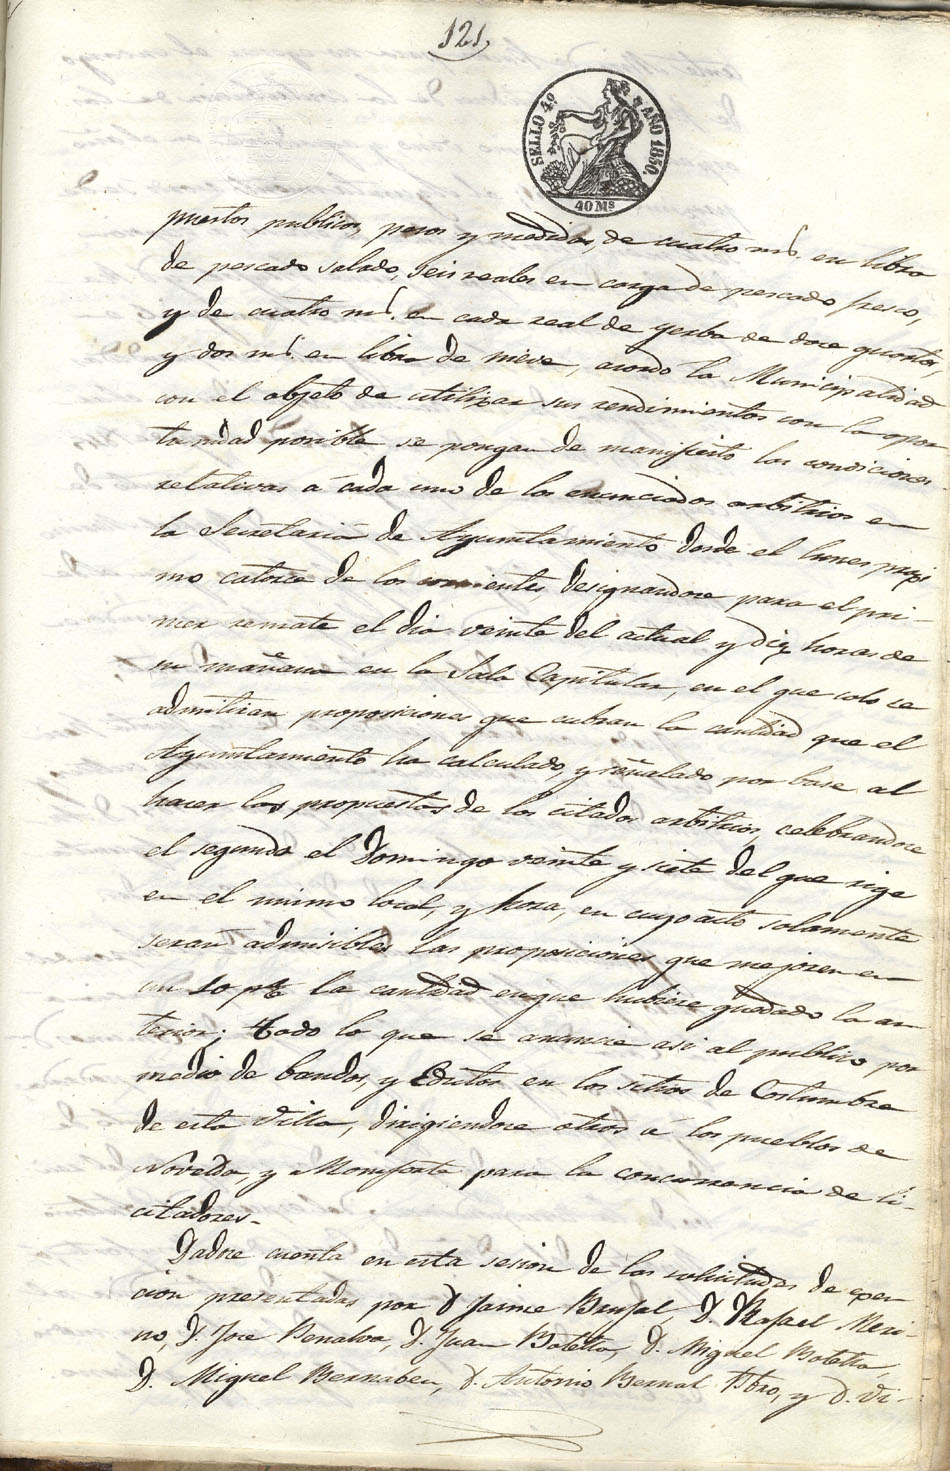 121,
SELLO 4.º AÑO 1850.
40 Ms
puestos publicos, pesos y medidas, de cuatro mrs. en libra
de pescado salado, seis reales en carga de pescado fresco,
y de cuatro mrs. en cada real de yerba de doce quartos,
y dos mrs. en libra de nieve, acordó la Municipalidad
con el objeto de utilizar sus rendimientos con la opor
tunidad posible se pongan de manifiesto las condiciones
relativas á cada uno de los enunciados arbitrios en
la Secretaria de Ayuntamiento desde el lunes proxi
mo catorce de los corrientes, designandose para el pri-
mer remate el dia veinte del actual y diez horas de
su mañana en la Sala Capitular, en el que solo se
admitiran proposiciones que cubran la cantidad que el
Ayuntamiento ha calculado, y señalado por base al
hacer las propuestas de los citados arbitrios, celebrandose
el segundo el Domingo veinte y siete del que rige
en el mismo local, y hora, en cuyo acto solamente
seran admisibles las proposiciones que mejoren en
un 10 p% la cantidad en que hubiere quedado la an
terior; todo lo que se anuncie asi al publico por
medio de bandos, y Edictos en los sitios de Costumbre
de esta Villa, dirigiendose otros á los pueblos de
Novelda, y Monforte para la concurrencia de li-
citadores.
Dadose cuenta en esta sesion de las solicitudes de exen
cion presentadas por D Jaime Brufal, D. Rafael Meri-
no, D. Jose Penalva, D. Juan Botella, D. Miguel Botella,
D. Miguel Bernabeu, D. Antonio Bernal Pbro, y D. Vi-